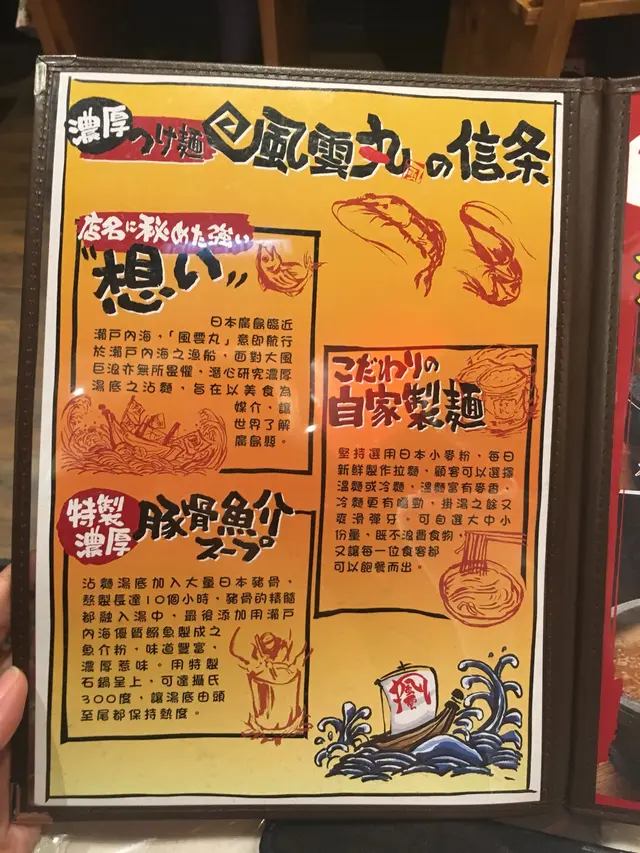 濃厚つけ麺 風雲丸の信条
店名に秘めた強い
"想い"
日本廣島臨近
瀨戶內海,「風雲丸」意即航行
於瀨戶內海之漁船,面對大風
巨浪亦無所畏懼,潛心研究濃厚
湯底之沾麵,旨在以美食為
媒介,讓
世界了解
廣島縣。
こだわりの
自家製麺
堅持選用日本小麥粉,每日
新鮮製作拉麵,顧客可以選擇
溫麵或冷麵,溫麵富有麥香,
冷麵更有嚼勁,掛湯之餘又
爽滑彈牙。可自選大中小
份量,既不浪費食物,
又讓每一位食客都
可以飽餐而出。
特製
濃厚
豚骨魚介
スープ
沾麵湯底加入大量日本豬骨,
熬製長達10個小時,豬骨的精髓
都融入湯中,最後添加用瀨戶
內海優質鯷魚製成之
魚介粉,味道豐富,
濃厚惹味。用特製
石鍋呈上,可達攝氏
300度,讓湯底由頭
至尾都保持熱度。
風雲